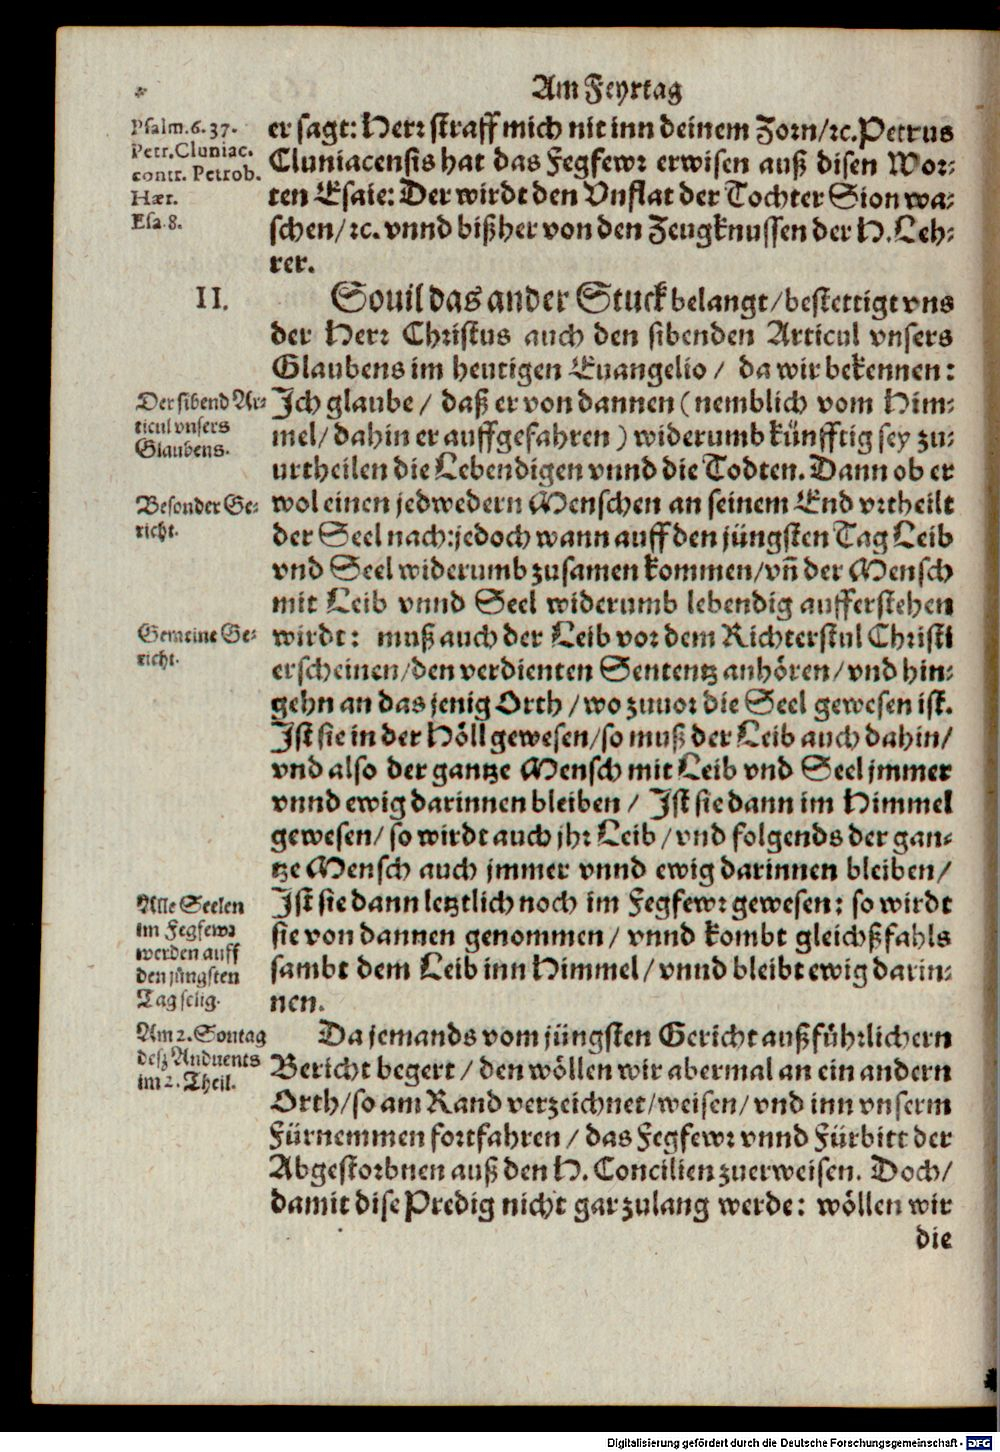 Am Feyrtag
Psalm. 6. 37.
Petr. Cluniac.
contr. Petrob.
Hær.
Esa. 8.
er sagt: Herr straff mich nit inn deinem Zorn/ꝛc. Petrus
Cluniacensis hat das Fegfewr erwisen auß disen Wor-
ten Esaie: Der wirdt den Vnflat der Tochter Sion wa-
schen/ꝛc. vnnd bißher von den Zeugknussen der H. Leh-
rer.
II.
Souil das ander Stuck belangt/bestettigt vns
der Herr Christus auch den sibenden Articul vnsers
Glaubens im heutigen Euangelio / da wir bekennen:
Der sibend Ar-
ticul vnsers
Glaubens.
Jch glaube / daß er von dannen (nemblich vom Him-
mel/dahin er auffgefahren) widerumb künfftig sey zu-
urtheilen die Lebendigen vnnd die Todten. Dann ob er
Besonder Ge-
richt.
wol einen jedwedern Menschen an seinem End vrtheilt
der Seel nach: jedoch wann auff den jüngsten Tag Leib
vnd Seel widerumb zusamen kommen/vñ der Mensch
mit Leib vnnd Seel widerumb lebendig aufferstehen
Gemeine Ge-
richt.
wirdt: muß auch der Leib vor dem Richterstul Christi
erscheinen/den verdienten Sententz anhören/vnd hin-
gehn an das jenig Orth/wo zuuor die Seel gewesen ist.
Jst sie in der Höll gewesen/so muß der Leib auch dahin/
vnd also der gantze Mensch mit Leib vnd Seel jmmer
vnnd ewig darinnen bleiben / Jst sie dann im Himmel
gewesen/ so wirdt auch jhr Leib / vnd folgends der gan-
tze Mensch auch jmmer vnnd ewig darinnen bleiben/
Alle Seelen
im Fegfewr
werden auff
den jüngsten
Tag selig.
Jst sie dann letztlich noch im Fegfewr gewesen: so wirdt
sie von dannen genommen / vnnd kombt gleichßfahls
sambt dem Leib inn Himmel/vnnd bleibt ewig darin-
nen.
Am 2. Sontag
deß Anduents
im 2. Theil.
Da jemands vom jüngsten Gericht außführlichern
Bericht begert / den wöllen wir abermal an ein andern
Orth/so am Rand verzeichnet/weisen/vnd inn vnserm
Fürnemmen fortfahren / das Fegfewr vnnd Fürbitt der
Abgestorbnen auß den H. Concilien zuerweisen. Doch/
damit dise Predig nicht gar zulang werde: wöllen wir
die
Digitalisierung gefördert durch die Deutsche Forschungsgemeinschaft - DFG